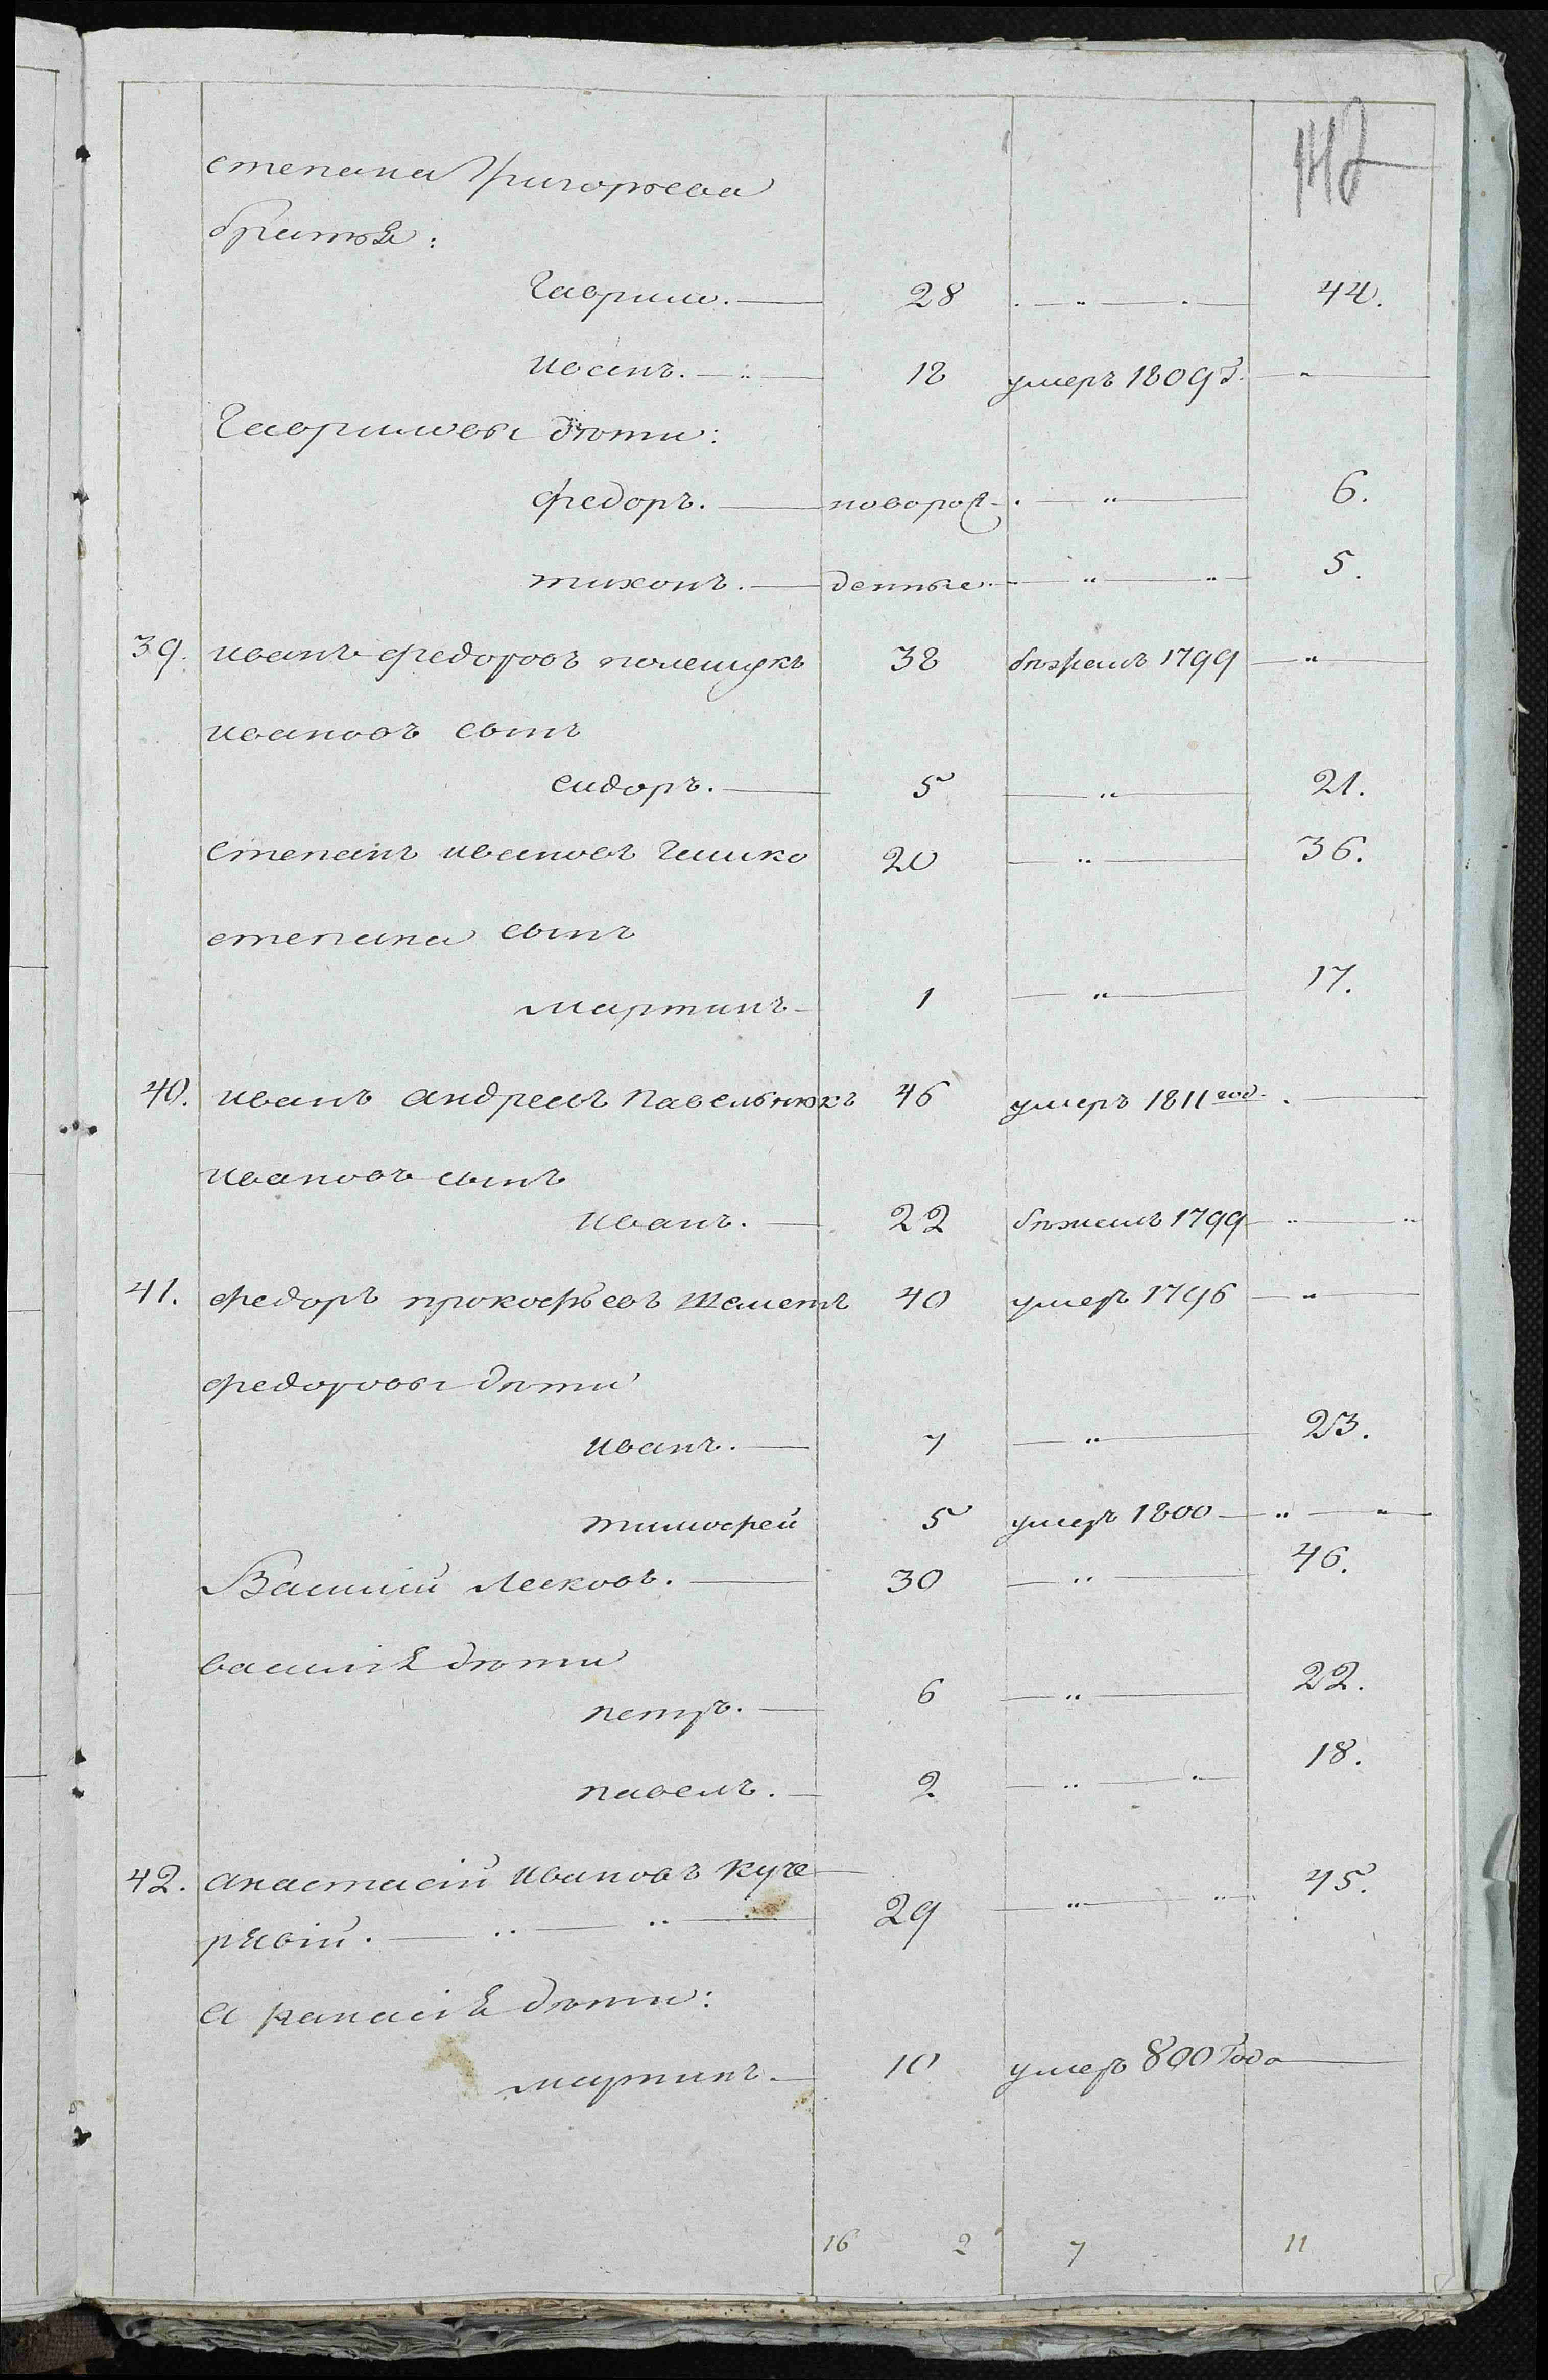 142
степана Григорьева
братья:
Гаврило. 28 44.
Иванъ. 18 умеръ 1809 г.
Гавриловы дѣти:
федоръ. новорож- 6.
тихонъ. денные. 5.
39. иванъ федоровъ полещукъ 38 бѣжалъ 1799
ивановъ сынъ
сидоръ. 5 21.
степанъ ивановъ 20 36.
степана сынъ
мартинъ 1 17.
40. иванъ андреевъ павельнюкъ 46 умеръ 1811 год.
ивановъ сынъ
иванъ. 22 бѣжалъ 1799
41. федоръ прокофьевъ шеметъ 40 умеръ 1796
федоровы дѣти
иванъ. 7 23.
тимофей 5 умеръ 1800
Василий Лесковъ. 30 46.
василія дѣти
петръ. 6 22.
павелъ. 2 18.
42. анастасій ивановъ Куче
рявій. 29 45.
афанасія дѣти:
мартинъ 10 умеръ 800 Года
16 2 7 11